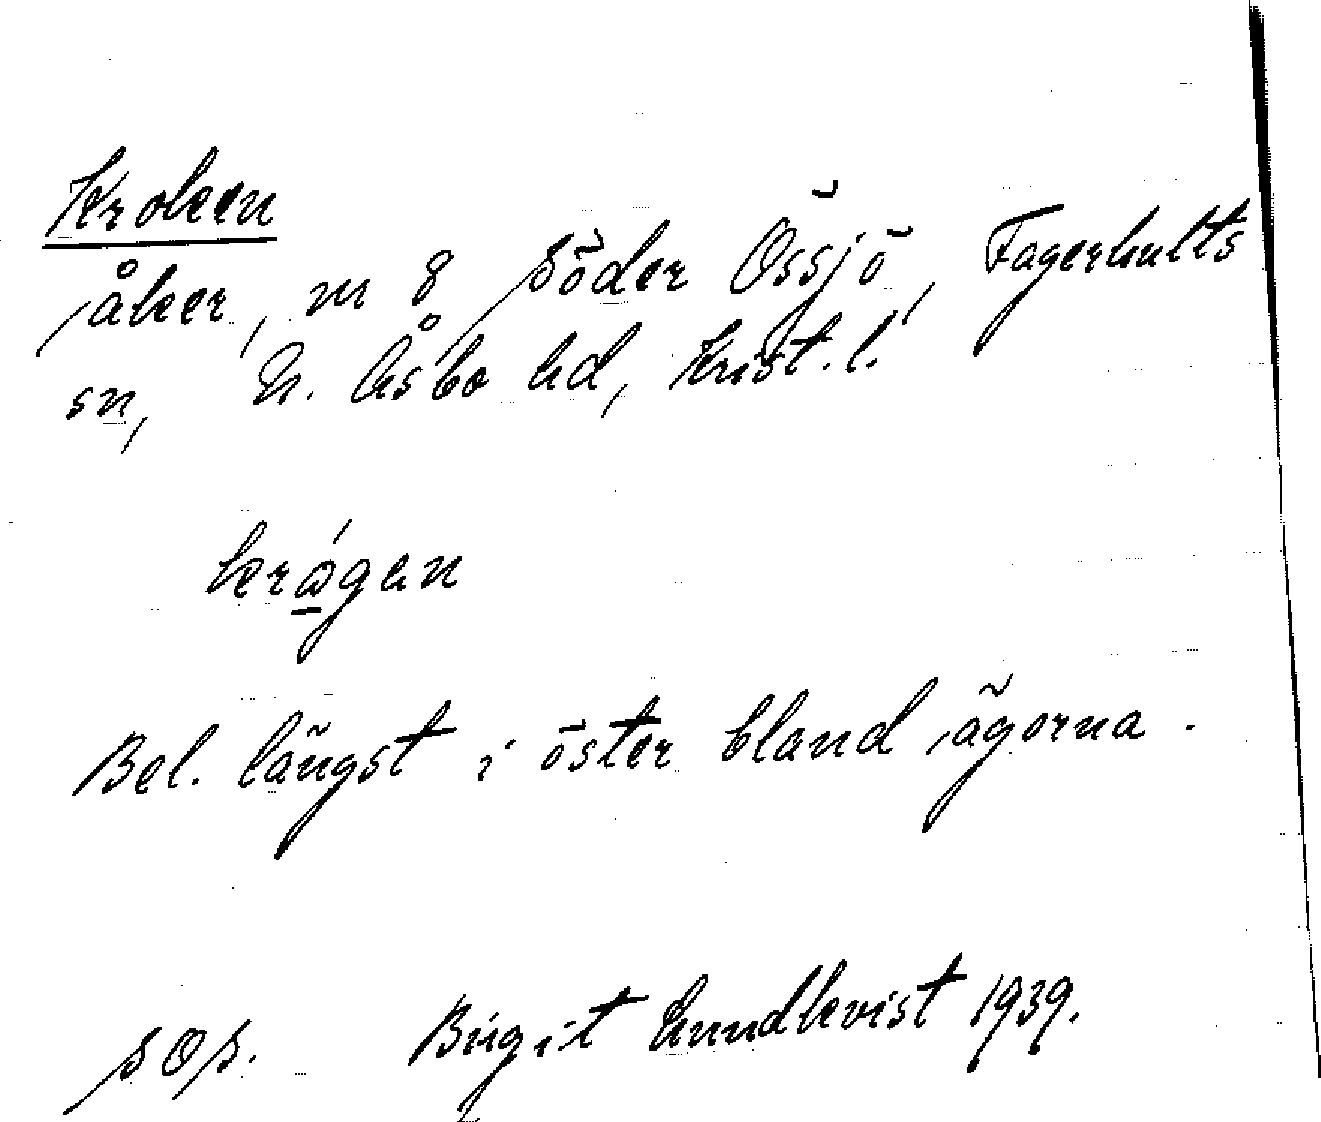 Kroken
åker, nr 8 Söder Össjö, Fagerhults
sn, N. Åsbo hd, Krist. l.
krågen
Bel. längst i öster bland ägorna.
SOS. Birgit Lundkvist 1939.